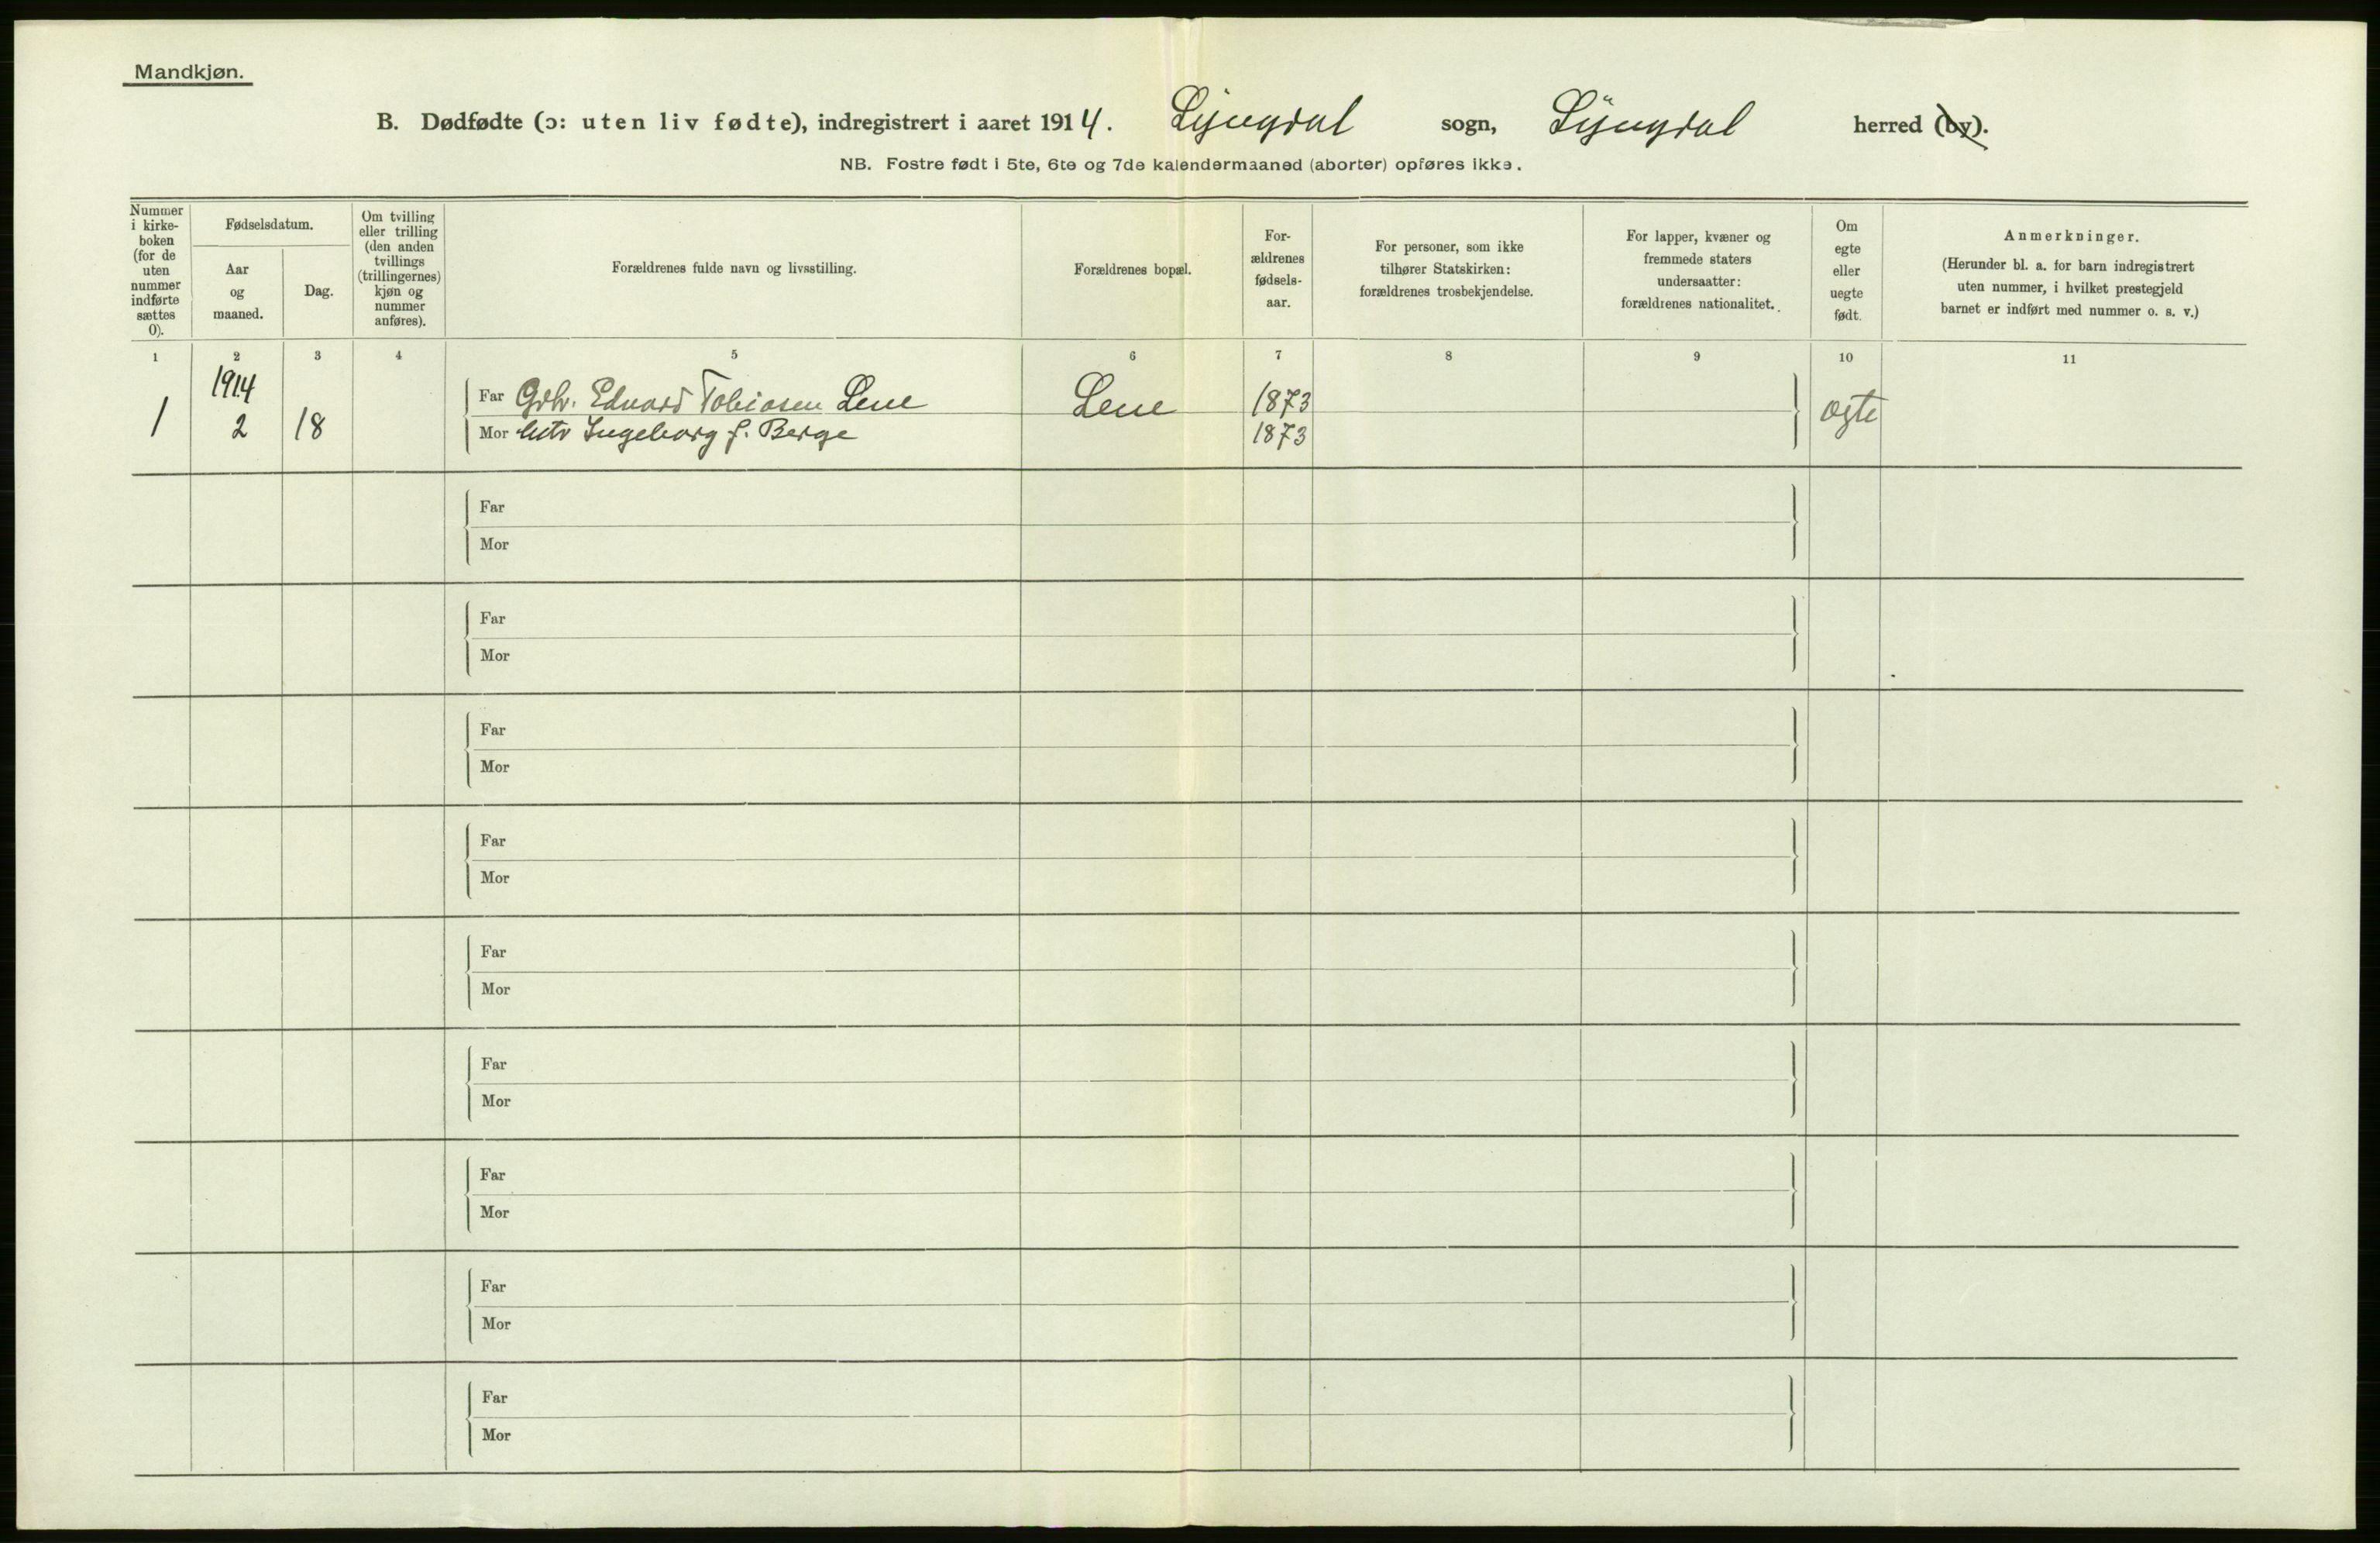 Mandkjøn.
B. Dødfødte (ɔ: uten liv fødte), indregistrert i aaret 1914. Lyngdal sogn, Lyngdal herred (by).
NB. Fostre født i 5te, 6te og 7de kalendermaaned (aborter) opføres ikke.
Nummer
i kirke-
boken
(for de
uten
nummer
indførte
sættes
0).
Fødselsdatum.
Aar
og
maaned.
Dag.
Om tvilling
eller trilling
(den anden
tvillings
(trillingernes)
kjøn og
nummer
anføres).
Forældrenes fulde navn og livsstilling.
Forældrenes bopæl.
For-
ældrenes
fødsels-
aar.
For personer, som ikke
tilhører Statskirken:
forældrenes trosbekjendelse.
For lapper, kvæner og
fremmede staters
undersaatter:
forældrenes nationalitet.
Om
egte
eller
uegte
født.
Anmerkninger.
(Herunder bl. a. for barn indregistrert
uten nummer, i hvilket prestegjeld
barnet er indført med nummer o. s. v.)
1 2 3 4 5 6 7 8 9 10 11
1914
Far Gbr. Edvard Tobiasen Lene Lene 1873
1 2 18 ægte
Mor Ingeborg f. Berge 1873
Far
Mor
Far
Mor
Far
Mor
Far
Mor
Far
Mor
Far
Mor
Far
Mor
Far
Mor
Far
Mor